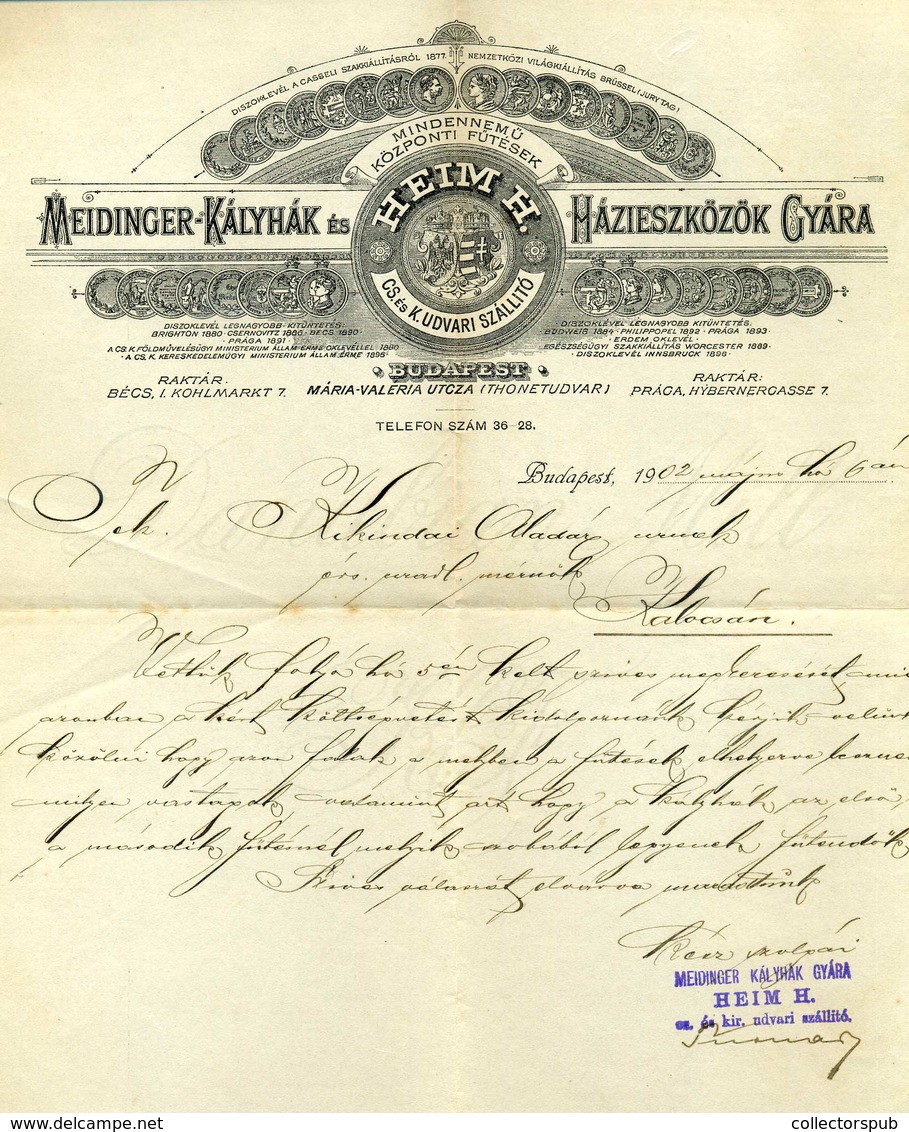 DISZOKLEVÉL A CASSELI SZAKKIÁLLITÁSRÓL 1877. NEMZETKÖZI VILÁGKIÁLLITÁS BRÜSSEL (JURY TAG)
MINDENNEMŰ
KÖZPONTI FŰTÉSEK
HEIM H.
MEIDINGER-KÁLYHÁK ÉS HÁZIESZKÖZÖK GYÁRA
CS. és K. UDVARI SZÁLLITÓ
DISZOKLEVÉL LEGNAGYOBB KITÜNTETÉS:
BRIGHTON 1880 · CSERNOVITZ 1886 · BÉCS 1890 ·
PRÁGA 1891
A CS. K. FÖLDMŰVELÉSÜGYI MINISTERIUM ÁLLAM ÉRME OKLEVÉLLEL 1880
A CS. K. KERESKEDELEMÜGYI MINISTERIUM ÁLLAM ÉRME 1896
DISZOKLEVÉL LEGNAGYOBB KITÜNTETÉS:
BUDWEIS 1884 · PHILIPPOPEL 1892 · PRÁGA 1893
ÉRDEM OKLEVÉL
EGÉSZSÉGÜGYI SZAKKIÁLLITÁS WORCESTER 1889
DISZOKLEVÉL INNSBRUCK 1896
BUDAPEST
MÁRIA-VALÉRIA UTCZA (THONETUDVAR)
RAKTÁR:
BÉCS, I. KOHLMARKT 7.
RAKTÁR:
PRÁGA, HYBERNERGASSE 7.
TELEFON SZÁM 36-28.
Budapest, 1902 május hó 6án
Tek. Kikindai Aladár úrnek
érs. uradl. mérnök
Kalocsán.
Vettük folyó hó 5én kelt szives megkeresését, mi
azonban a kért költségvetést kidolgoznánk kérjük velün
közölni hogy azon falak a melyben a fűtések elhelyezve leszne
milyen vastagok, valamint azt hogy a kályhák az első
a második fűtésnél melyik szobából legyenek fűtendők
Szives válaszát elvárva maradtunk
Kész szolgái
MEIDINGER KÁLYHÁK GYÁRA
HEIM H.
cs. és kir. udvari szállitó.
collectorspub